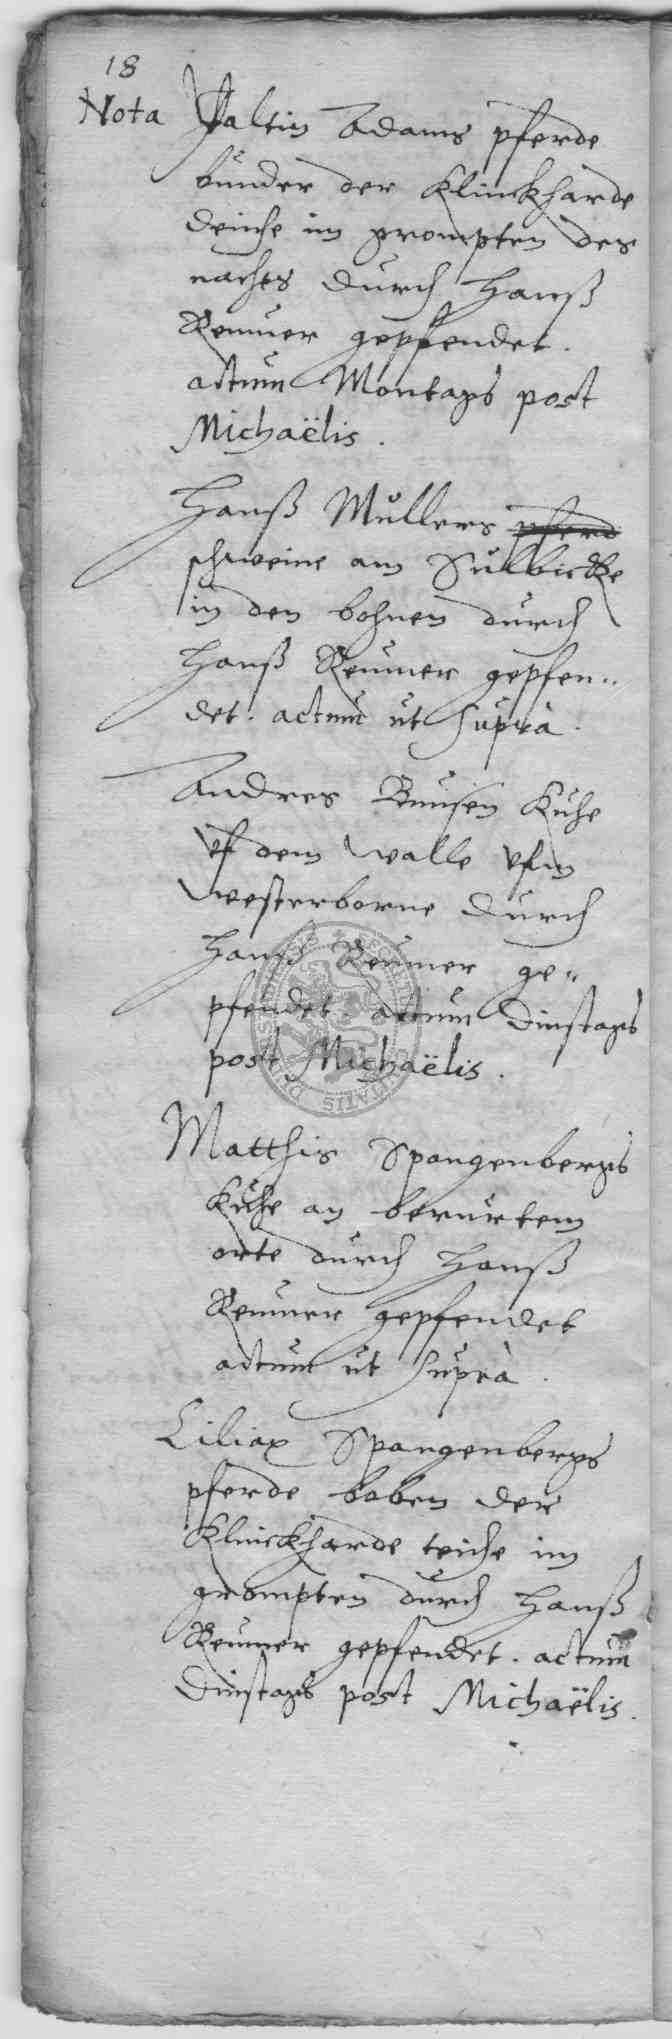 18
Nota Faltin Adams pferde
bunder der Klinckharde
deiche im grompten des
nachts durch Hanß
Reumer gepfendet.
actum Montags post
Michaëlis.
Hanß Müllers pferd
schweine am Sulbicke
in den bohnen durch
Hanß Reumer gepfen„
det. actum ut supra.
Andres Bunsen Kuhe
uf dem walle ufm
westerborne durch
Hanß Reumer ge„
pfendet. actum Dinstags
post Michaëlis.
Matthis Spangenbergs
Kuhe an berurtem
orte durch Hanß
Reumer gepfendet
actum ut supra.
Ciliax Spangenbergs
pferde boben der
Klinckharde teiche im
grompten durch Hanß
Reumer gepfendet. actum
Dinstags post Michaëlis.